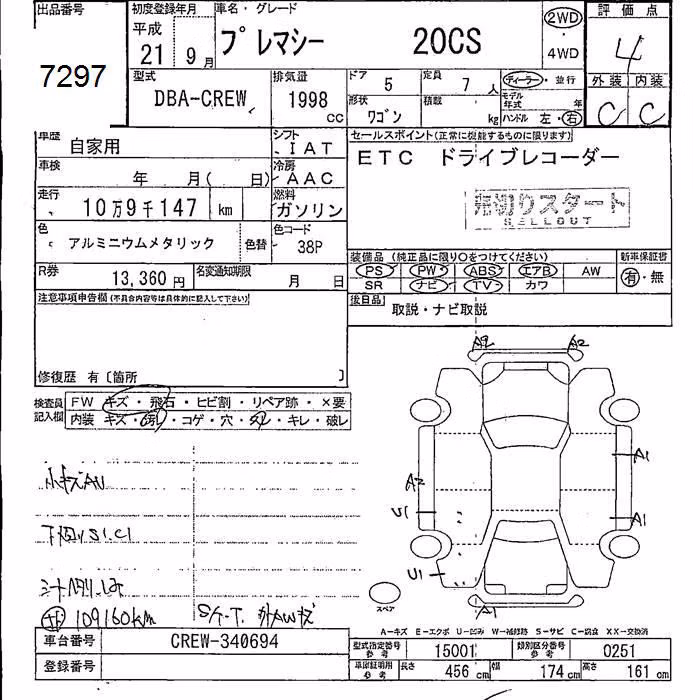 出品番号 初度登録年月 車名・グレード 評価点
7297 平成 21 9月 プレマシー 20CS 2WD ・ 4WD 4
型式 排気量 ドア 5 定員 7人 ディーラー・並行 外装 内装
DBA-CREW 1998 CC 形状 ワゴン 積載 kg モデル年式 年 C C
ハンドル 左・右
車歴 自家用 シフト IAT セールスポイント(正常に機能するものに限ります)
車検 年 月( 日) 冷房 AAC ETC ドライブレコーダー
走行 10万9千147 km 燃料 ガソリン 売切りスタート
SELLOUT
色 アルミニウムメタリック 色替 色コード 38P
装備品(純正品に限り○をつけてください) 新車保証書
R券 13,360円 名変通知期限 月 日 PS PW ABS エアB AW 有・無
SR ナビ TV カワ
注意事項申告欄(不具合内容等は具体的に記入して下さい) 後日品 取説・ナビ取説
修復歴 有〔箇所 〕
検査員記入欄 FW キズ・飛石・ヒビ割・リペア跡・×要
内装 キズ・汚レ・コゲ・穴・タレ・キレ・破レ
A2 A2
A1
小キズAU A2
U1 A1
下回りS1.C1
U1
A1
109160km
スペア
A-キズ E-エクボ U-凹み W-補修跡 S-サビ C-腐食 XX-交換済
車台番号 CREW-340694 型式指定番号 参考 15001 類別区分番号 参考 0251
登録番号 車庫証明用 参考 長さ 456cm 幅 174cm 高さ 161cm